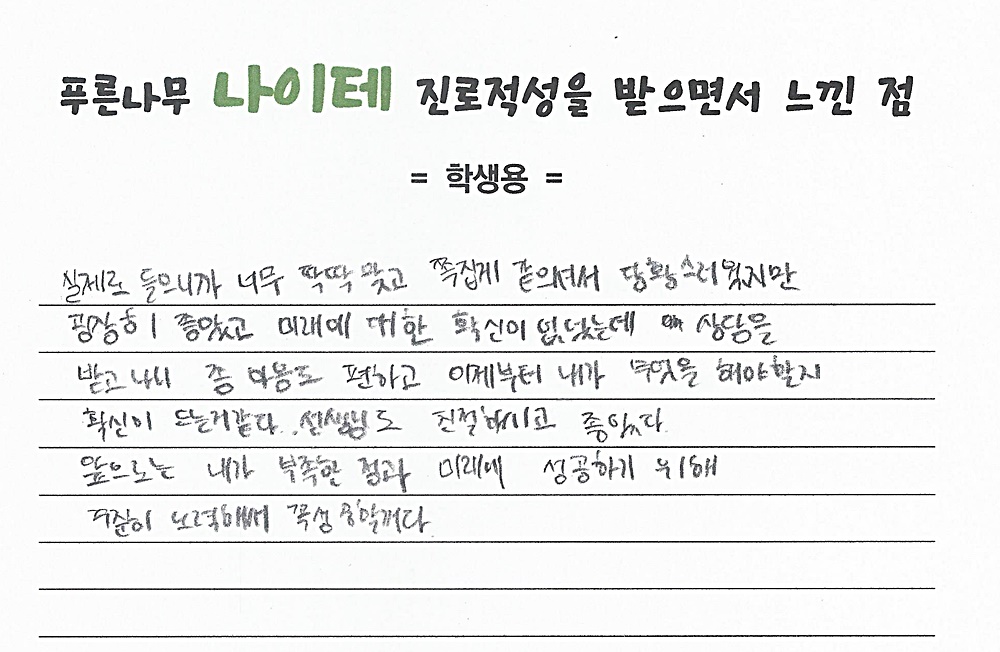 푸른나무 나이테 진로적성을 받으면서 느낀 점
= 학생용 =
실제로 들으니까 너무 딱딱 맞고 쪽집게 같으셔서 당황스러웠지만
굉장히 좋았고 미래에 대한 확신이 없었는데 상담을
받고나니 좀 마음도 편하고 이제부터 내가 무엇을 해야할지
확신이 드는거같다. 선생님도 친절하시고 좋았다
앞으로는 내가 부족한 점과 미래에 성공하기 위해
꾸준히 노력해서 꼭성공할꺼다